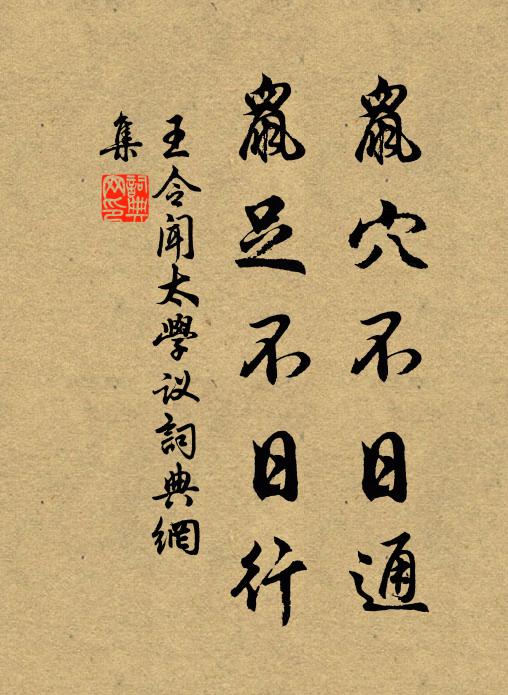 鼠穴不日通
鼠足不日行
王令聞太學议詞典網
集
詞典網印